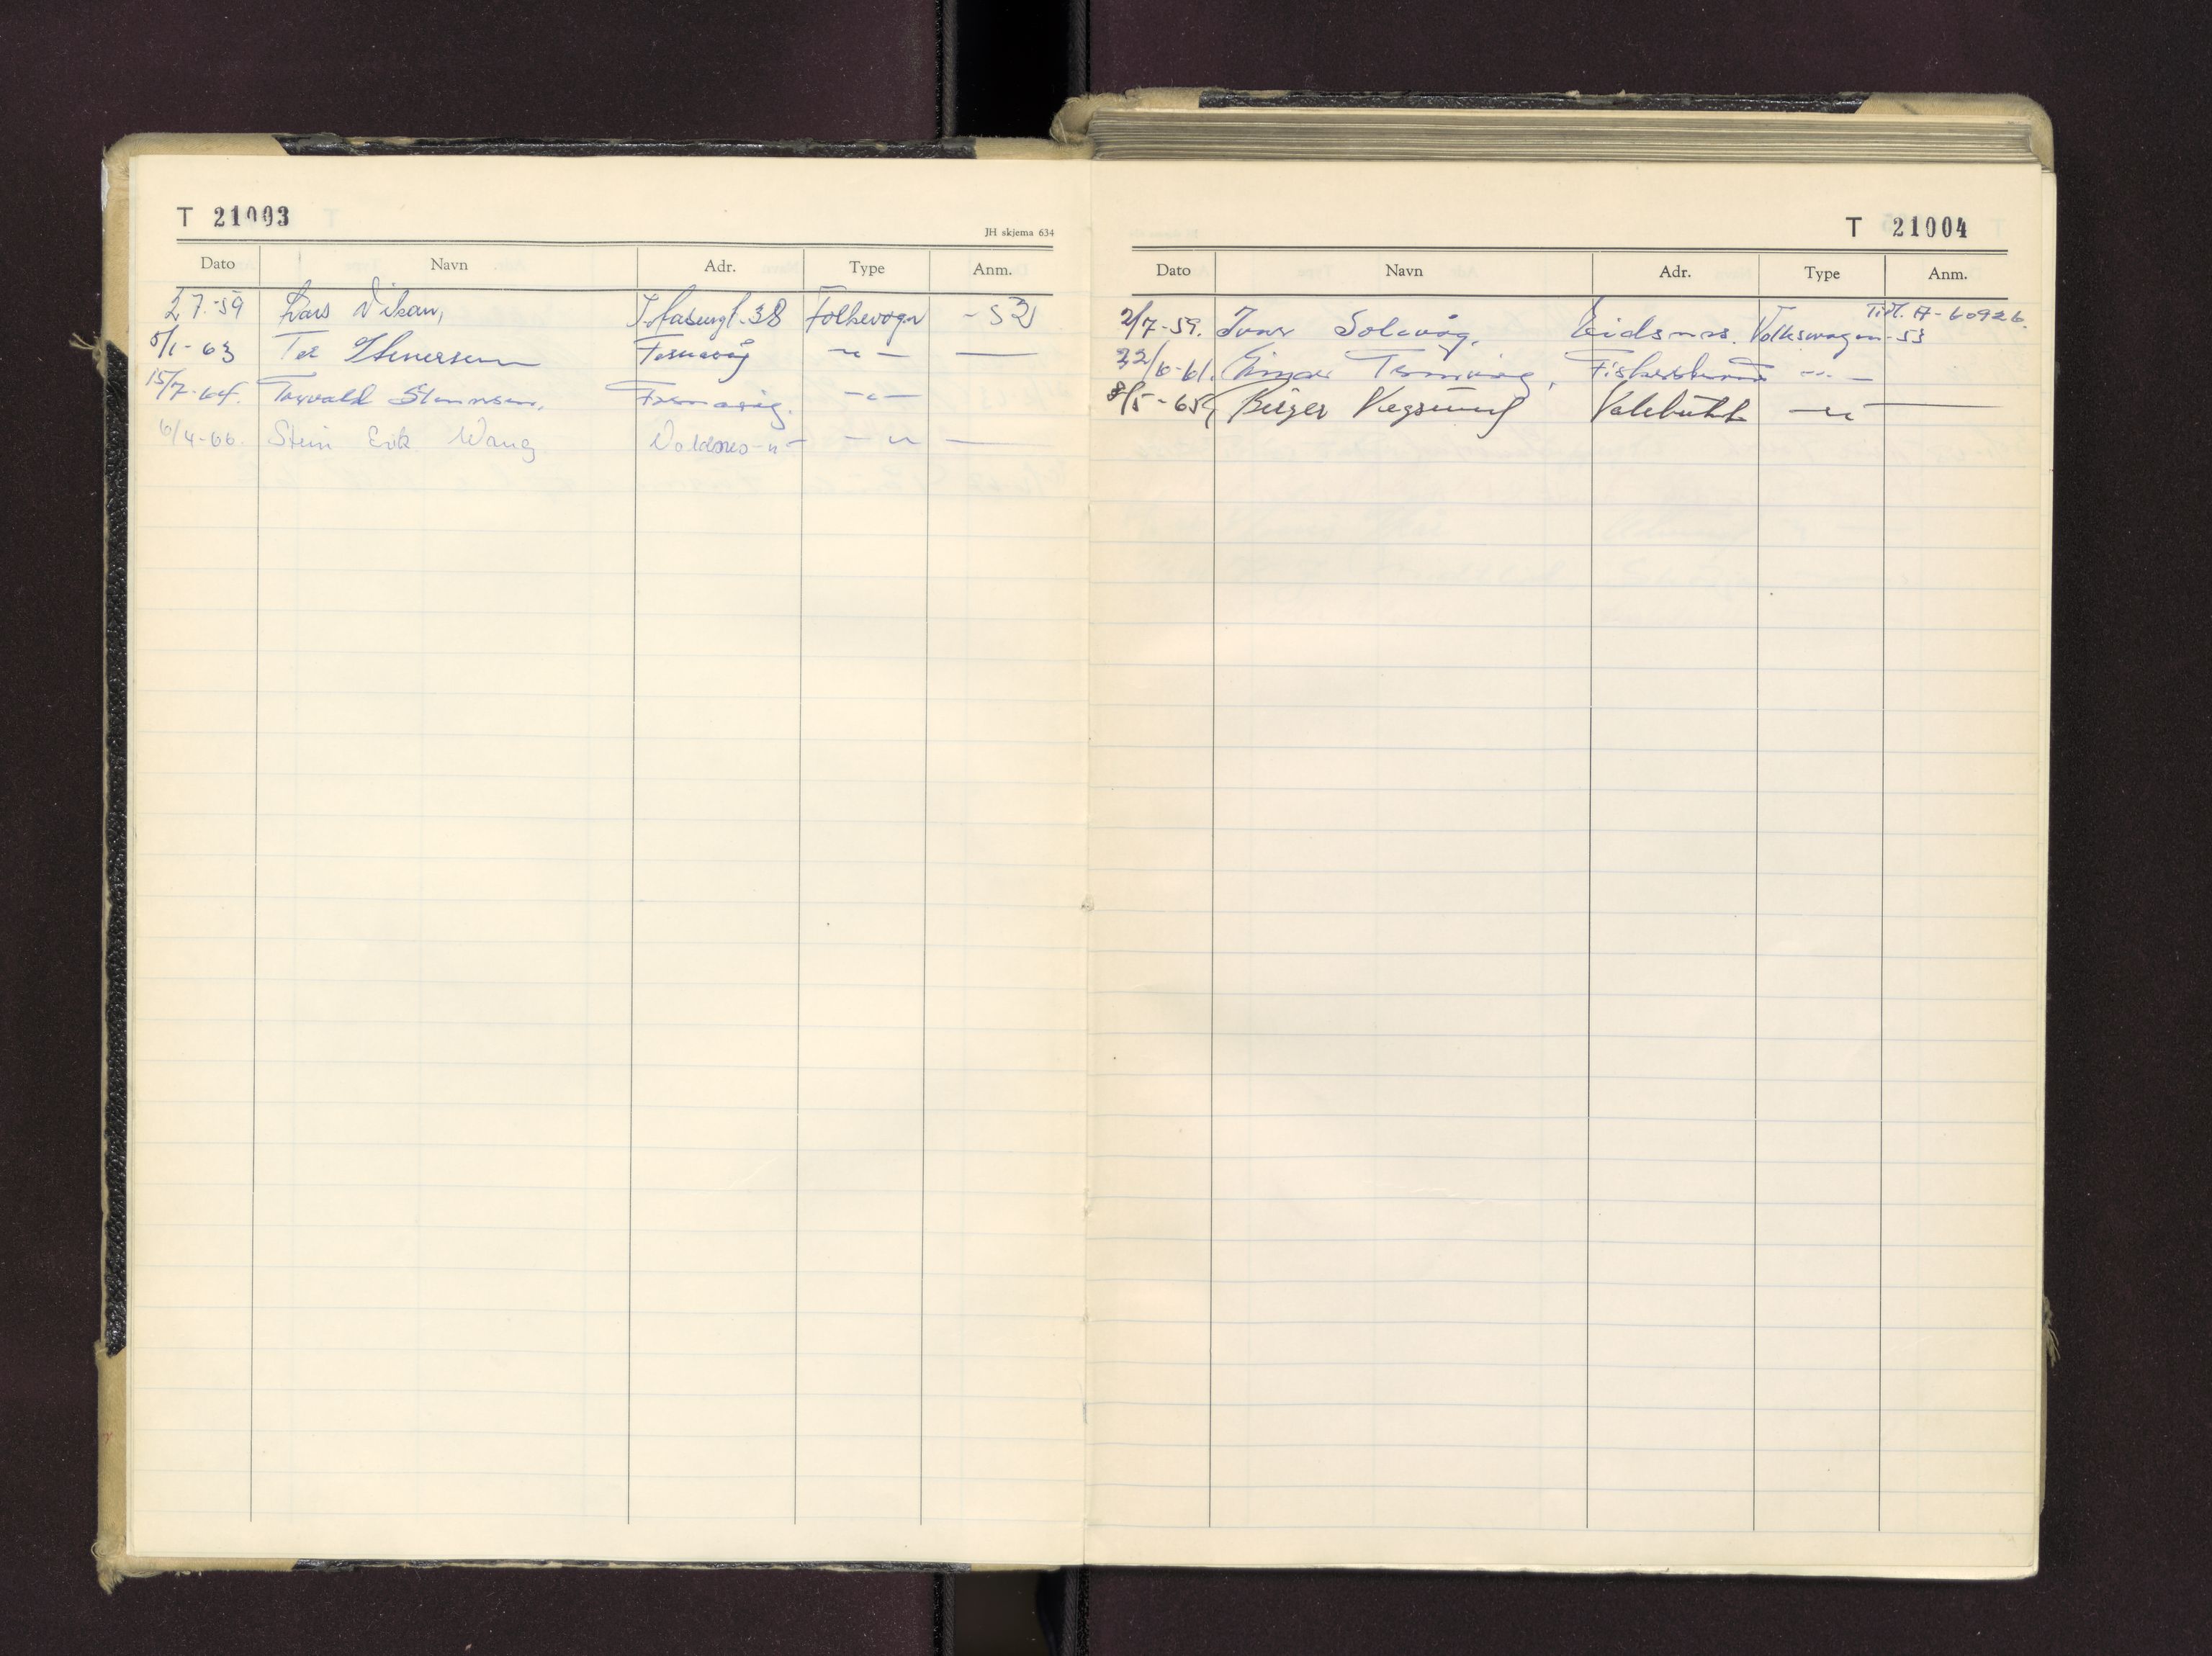 T 21003
JH skjema 634
Dato Navn Adr. Type Anm.
2 7.-59 Lars Vikan, 38 Folkevogn -52
5/1-63 Fosnavåg -"- —
15/7-64. Torvald Fosnavåg. -"-
6/4-66. Stein Erik Wang Voldsnes -"- -"- —
T 21004
Dato Navn Adr. Type Anm.
Til. A-60926.
2/7-59. Ivar Solevåg, Eidsnes. Volkswagen-53
22/6-61. Einar Fiskerstrand -"-
8/5-65 Birger Vegsund -"- —